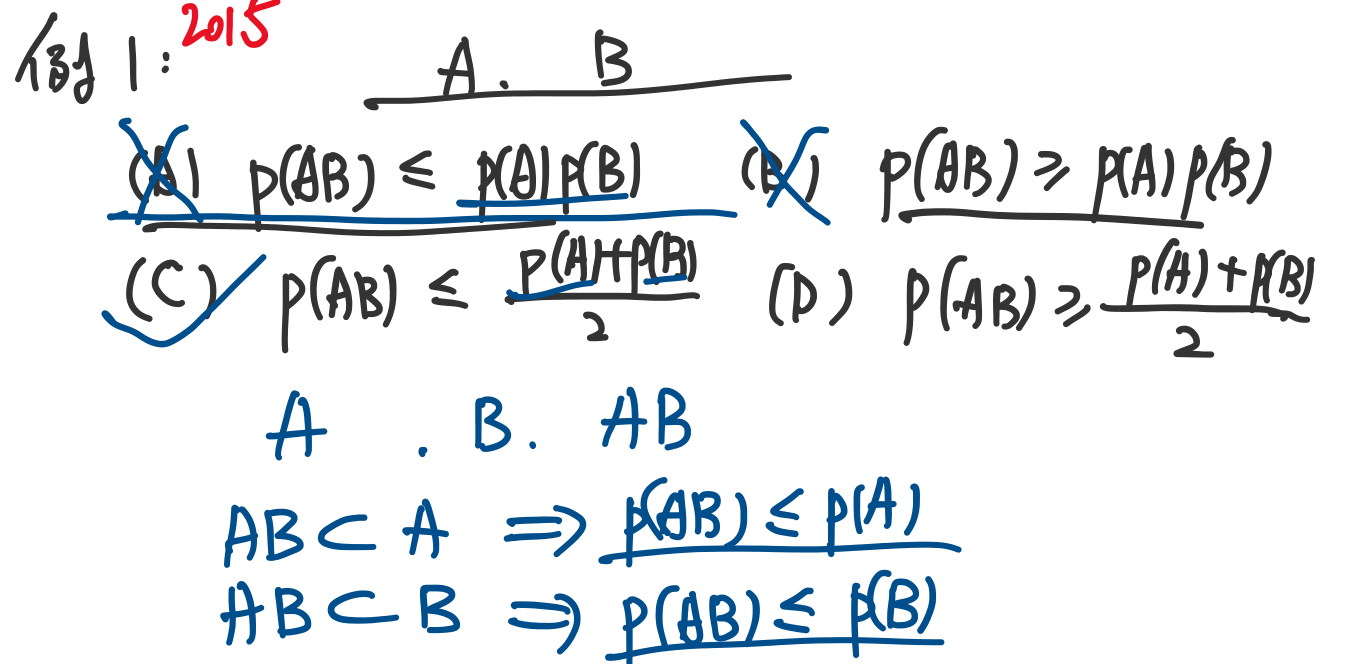 例1: 2015
A. B
(A) P(AB) ≤ P(A)P(B) (B) P(AB) ≥ P(A)P(B)
(C) P(AB) ≤ \frac{P(A)+P(B)}{2} (D) P(AB) ≥ \frac{P(A)+P(B)}{2}
A . B. AB
AB ⊂ A ⇒ P(AB) ≤ P(A)
AB ⊂ B ⇒ P(AB) ≤ P(B)